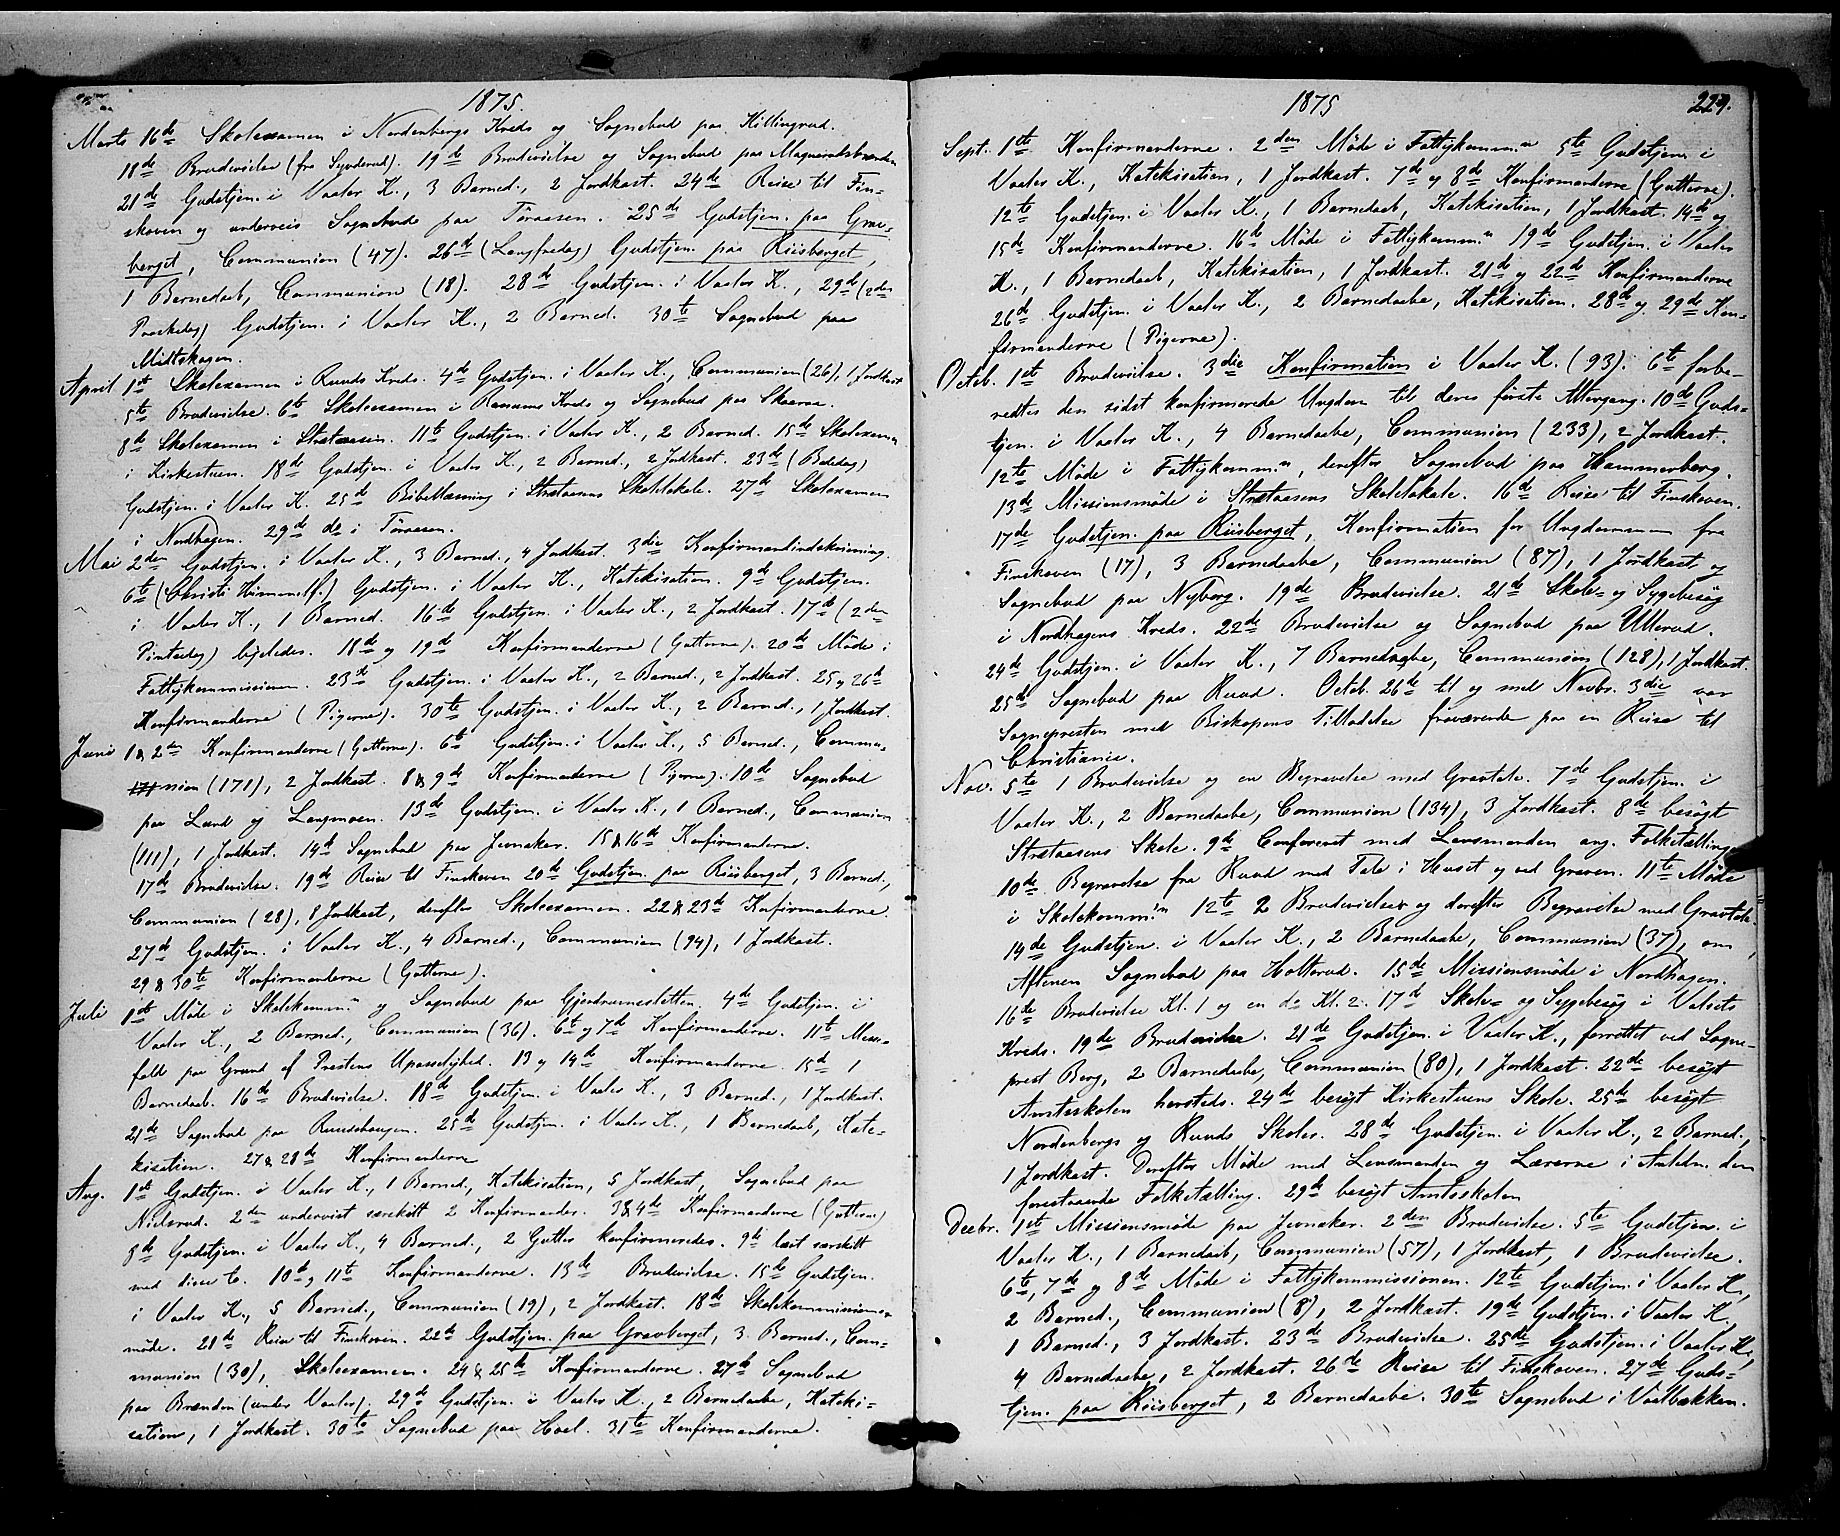 1875.
Marts 16de Skoleexamen i Nordenbergs Kreds og Sognebud paa Killingrud.
18de Brudevielse (fra Synderud). 19de Brudevielse og Sognebud paa
21de Gudstjen. i Vaaler K., 3 Barned., 2 Jordkast. 24de Reise til Fin-
skoven og underveis Sognebud paa Töraasen. 25de Gudstjen. paa Grav-
berget, Communion (47). 26de (Langfredag) Gudstjen. paa Riisberget,
1 Barnedaab, Communion (18). 28de Gudstjen. i Vaaler K., 29de (2den
Paaskedag) Gudstjen. i Vaaler K., 2 Barned. 30te Sognebud paa
Midtskogen.
April 1ste Skoleexamen i Ruuds Kreds. 4de Gudstjen. i Vaaler K., Communion (26), 1 Jordkast
5te Brudevielse. 6te Skoleexamen i Kreds og Sognebud paa
8de Skoleexamen i Strætaasen. 11te Gudstjen. i Vaaler K., 2 Barned. 15de Skoleexamen
i Kirkestuen. 18de Gudstjen. i Vaaler K., 2 Barned., 2 Jordkast. 23de (Bededag)
Gudstjen. i Vaaler K. 25de Bibellæsning i Strætaasens Skolelokale. 27de Skoleexamen
i Nordhagen. 29de do i Töraasen.
Mai 2den Gudstjen. i Vaaler K., 3 Barned., 4 Jordkast. 3die Konfirmantindskrivning.
6te (Christi Himmelf.) Gudstjen. i Vaaler K., Katekisation. 9de Gudstjen.
i Vaaler K., 1 Barned. 16de Gudstjen. i Vaaler K., 2 Jordkast. 17de (2den
Pintsedag) ligeledes. 18de og 19de Konfirmanderne (Gutterne). 20de Möde i
Fattigkommissionen. 23de Gudstjen. i Vaaler K., 2 Barned., 2 Jordkast. 25 og 26de
Konfirmanderne (Pigerne). 30te Gudstjen. i Vaaler K., 2 Barned., 1 Jordkast.
Juni 1 & 2den Konfirmanderne (Gutterne). 6te Gudstjen. i Vaaler K., 5 Barned., Commu-
nion (171), 2 Jordkast. 8 & 9de Konfirmanderne (Pigerne). 10de Sognebud
paa Lund og Langmoen. 13de Gudstjen. i Vaaler K., 1 Barned., Communion
(111), 1 Jordkast. 14de Sognebud paa Jevnaker. 15 & 16de Konfirmanderne.
17de Brudevielse. 19de Reise til Finskoven 20de Gudstjen. paa Riisberget, 3 Barned.,
Communion (28), 8 Jordkast, derefter Skoleexamen. 22 & 23de Konfirmanderne.
27de Gudstjen. i Vaaler K., 4 Barned., Communion (94), 1 Jordkast.
29 & 30te Konfirmanderne (Gutterne).
Juli 1ste Möde i Skolekomm.n og Sognebud paa Gjerdrumssletten. 4de Gudstjen. i
Vaaler K., 2 Barned., Communion (36). 6te og 7de Konfirmanderne. 11te Mess-
fald paa Grund af Prestens Upasselighed. 13 og 14de Konfirmanderne. 15de 1
Barnedaab. 16de Brudevielse. 18de Gudstjen. i Vaaler K., 3 Barned., 1 Jordkast.
21de Sognebud paa Ruudshaugen. 25de Gudstjen. i Vaaler K., 1 Barnedaab, Kate-
kisation. 27 & 28de Konfirmanderne
Aug. 1ste Gudstjen. i Vaaler K., 1 Barned., Katekisation, 5 Jordkast, Sognebud paa
Nielsrud. 2den undervist særskilt 2 Konfirmander. 3 & 4de Konfirmanderne (Gutterne)
8de Gudstjen. i Vaaler K., 4 Barned., 2 Gutter konfirmeredes. 9de læst særskilt
med disse to. 10de og 11te Konfirmanderne. 13de Brudevielse. 15de Gudstjen.
i Vaaler K., 5 Barned., Communion (19), 2 Jordkast. 18de Skolekommissions-
möde. 21de Reise til Finskoven. 22de Gudstjen. paa Gravberget, 3 Barned., Com-
munion (30), Skoleexamen. 24 & 25de Konfirmanderne. 27de Sognebud
paa Brænden (under Vaaler). 29de Gudstjen. i Vaaler K., 2 Barnedaabe, Kateki-
sation, 1 Jordkast. 30te Sognebud paa Hoel. 31te Konfirmanderne.
1875
229.
Sept. 1ste Konfirmanderne. 2den Möde i Fattigkomm.n 5te Gudstjen. i
Vaaler K., Katekisation, 1 Jordkast. 7de og 8de Konfirmanderne (Gutterne).
12te Gudstjen. i Vaaler K., 1 Barnedaab, Katekisation, 1 Jordkast. 14de og
15de Konfirmanderne. 16de Möde i Fattigkomm.n 19de Gudstjen. i Vaaler
K., 1 Barnedaab, Katekisation, 1 Jordkast. 21de og 22de Konfirmanderne
26de Gudstjen. i Vaaler K., 2 Barnedaabe, Katekisation. 28de og 29de Kon-
firmanderne (Pigerne).
Octob. 1ste Brudevielse. 3die Konfirmation i Vaaler K. (93). 6te forbe-
redtes den sidst konfirmerede Ungdom til deres förste Altergang. 10de Guds-
tjen. i Vaaler K., 4 Barnedaabe, Communion (233), 2 Jordkast.
12te Möde i Fattigkomm.n, derefter Sognebud paa Hammerberg.
13de Missionsmöde i Strætaasens Skolelokale. 16de Reise til Finskoven.
17de Gudstjen. paa Riisberget, Konfirmation for Ungdommen fra
Finskoven (17), 3 Barnedaabe, Communion (87), 1 Jordkast og
Sognebud paa Nyborg. 19de Brudevielse. 21de Skole- og Sygebesög
i Nordhagens Kreds. 22de Brudevielse og Sognebud paa Ullerud.
24de Gudstjen. i Vaaler K., 7 Barnedaabe, Communion (128), 1 Jordkast.
25de Sognebud paa Ruud. Octob. 26de til og med Novbr. 3die var
Sognepresten med Biskopens Tilladelse fraværende paa en Reise til
Christiania.
Nov. 5te 1 Brudevielse og en Begravelse med Gravtale. 7de Gudstjen. i
Vaaler K., 2 Barnedaabe, Communion (134), 3 Jordkast. 8de besögt
Strætaasens Skole. 9de Confereret med Lensmanden ang. Folketælling
10de Begravelse fra Ruud med Tale i Huset og ved Graven. 11te Möde
i Skolekomm.n 12te 2 Brudevielser og derefter Begravelse med Gravtale.
14de Gudstjen. i Vaaler K., 2 Barnedaabe, Communion (37), om
Aftenen Sognebud paa Holterud. 15de Missionsmöde i Nordhagen.
16de Brudevielse Kl. 1 og en do Kl. 2. 17de Skole- og Sygebesög i Valsets
Kreds. 19de Brudevielse. 21de Gudstjen. i Vaaler K., forrettet ved Sogne-
prest Berg, 2 Barnedaabe, Communion (80), 1 Jordkast. 22de besögt
Amtsskolen hersteds. 24de besögt Kirkestuens Skole. 25de besögt
Nordenbergs og Ruuds Skoler. 28de Gudstjen. i Vaaler K., 2 Barned.,
1 Jordkast. Derefter Möde med Lensmanden og Lærerne i Anledn. den
forestaaende Folketælling. 29de besögt Amtsskolen
Decbr. 1ste Missionsmöde paa Jevnaker. 2den Brudevielse. 5te Gudstjen. i
Vaaler K., 1 Barnedaab, Communion (57), 1 Jordkast, 1 Brudevielse.
6te, 7de og 8de Möde i Fattigkommissionen. 12te Gudstjen. i Vaaler K.,
2 Barned., Communion (8), 2 Jordkast. 19de Gudstjen. i Vaaler K.
1 Barned., 3 Jordkast. 23de Brudevielse. 25de Gudstjen. i Vaaler K.,
4 Barnedaabe, 2 Jordkast. 26de Reise til Finskoven. 27de Guds-
tjen. paa Riisberget, 2 Barnedaabe. 30te Sognebud i Vaalbækken.